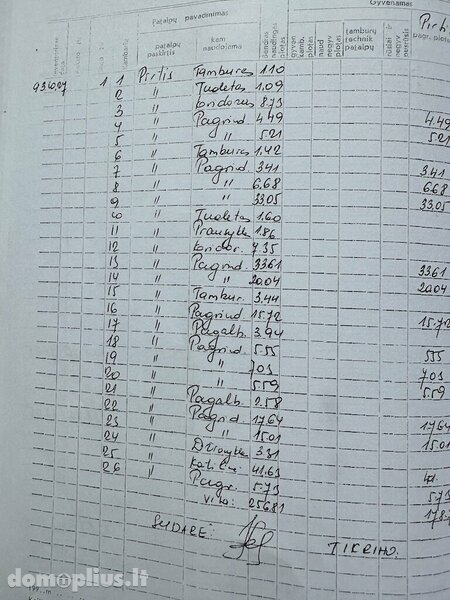 Patalpų pavadinimas
Gyvenamas
patalpų paskirtis
kam naudojama
Bendras naudingas plotas
gyven. kamb. plotas
naud. negyv. plotas
tamburų technik. patalpų
rūsiai ir negyv. pastogės
Pirti
pagr. plotas
93607 1 1 Pirtis Tamburas 1.10
2 " Tualetas 1.09
3 " Koridorius 8.73
4 " Pagrind. 4.49 4.49
5 " " 5.21 5.21
6 " Tamburas 1.42
7 " Pagrind. 3.41 3.41
8 " " 6.68 6.68
9 " " 33.05 33.05
10 " Tualetas 1.60
11 " Prausykla 1.86
12 " Koridor. 7.35
13 " Pagrind. 33.61 33.61
14 " " 20.04 20.04
15 " Tambur. 3.44
16 " Pagrind. 15.72 15.72
17 " Pagalb. 3.94
18 " Pagrind. 5.55 5.55
19 " " 7.03 7.03
20 " " 5.59 5.59
21 " Pagalb. 2.58
22 " Pagrind. 17.64 17.64
23 " " 15.01 15.01
24 " Džiovykla 3.31
25 " Katilin. 41.63
26 " Pagr. 5.73 5.73
Viso: 256.81 178.7
SUDARĖ:
TIKRINO.
domoplius.lt